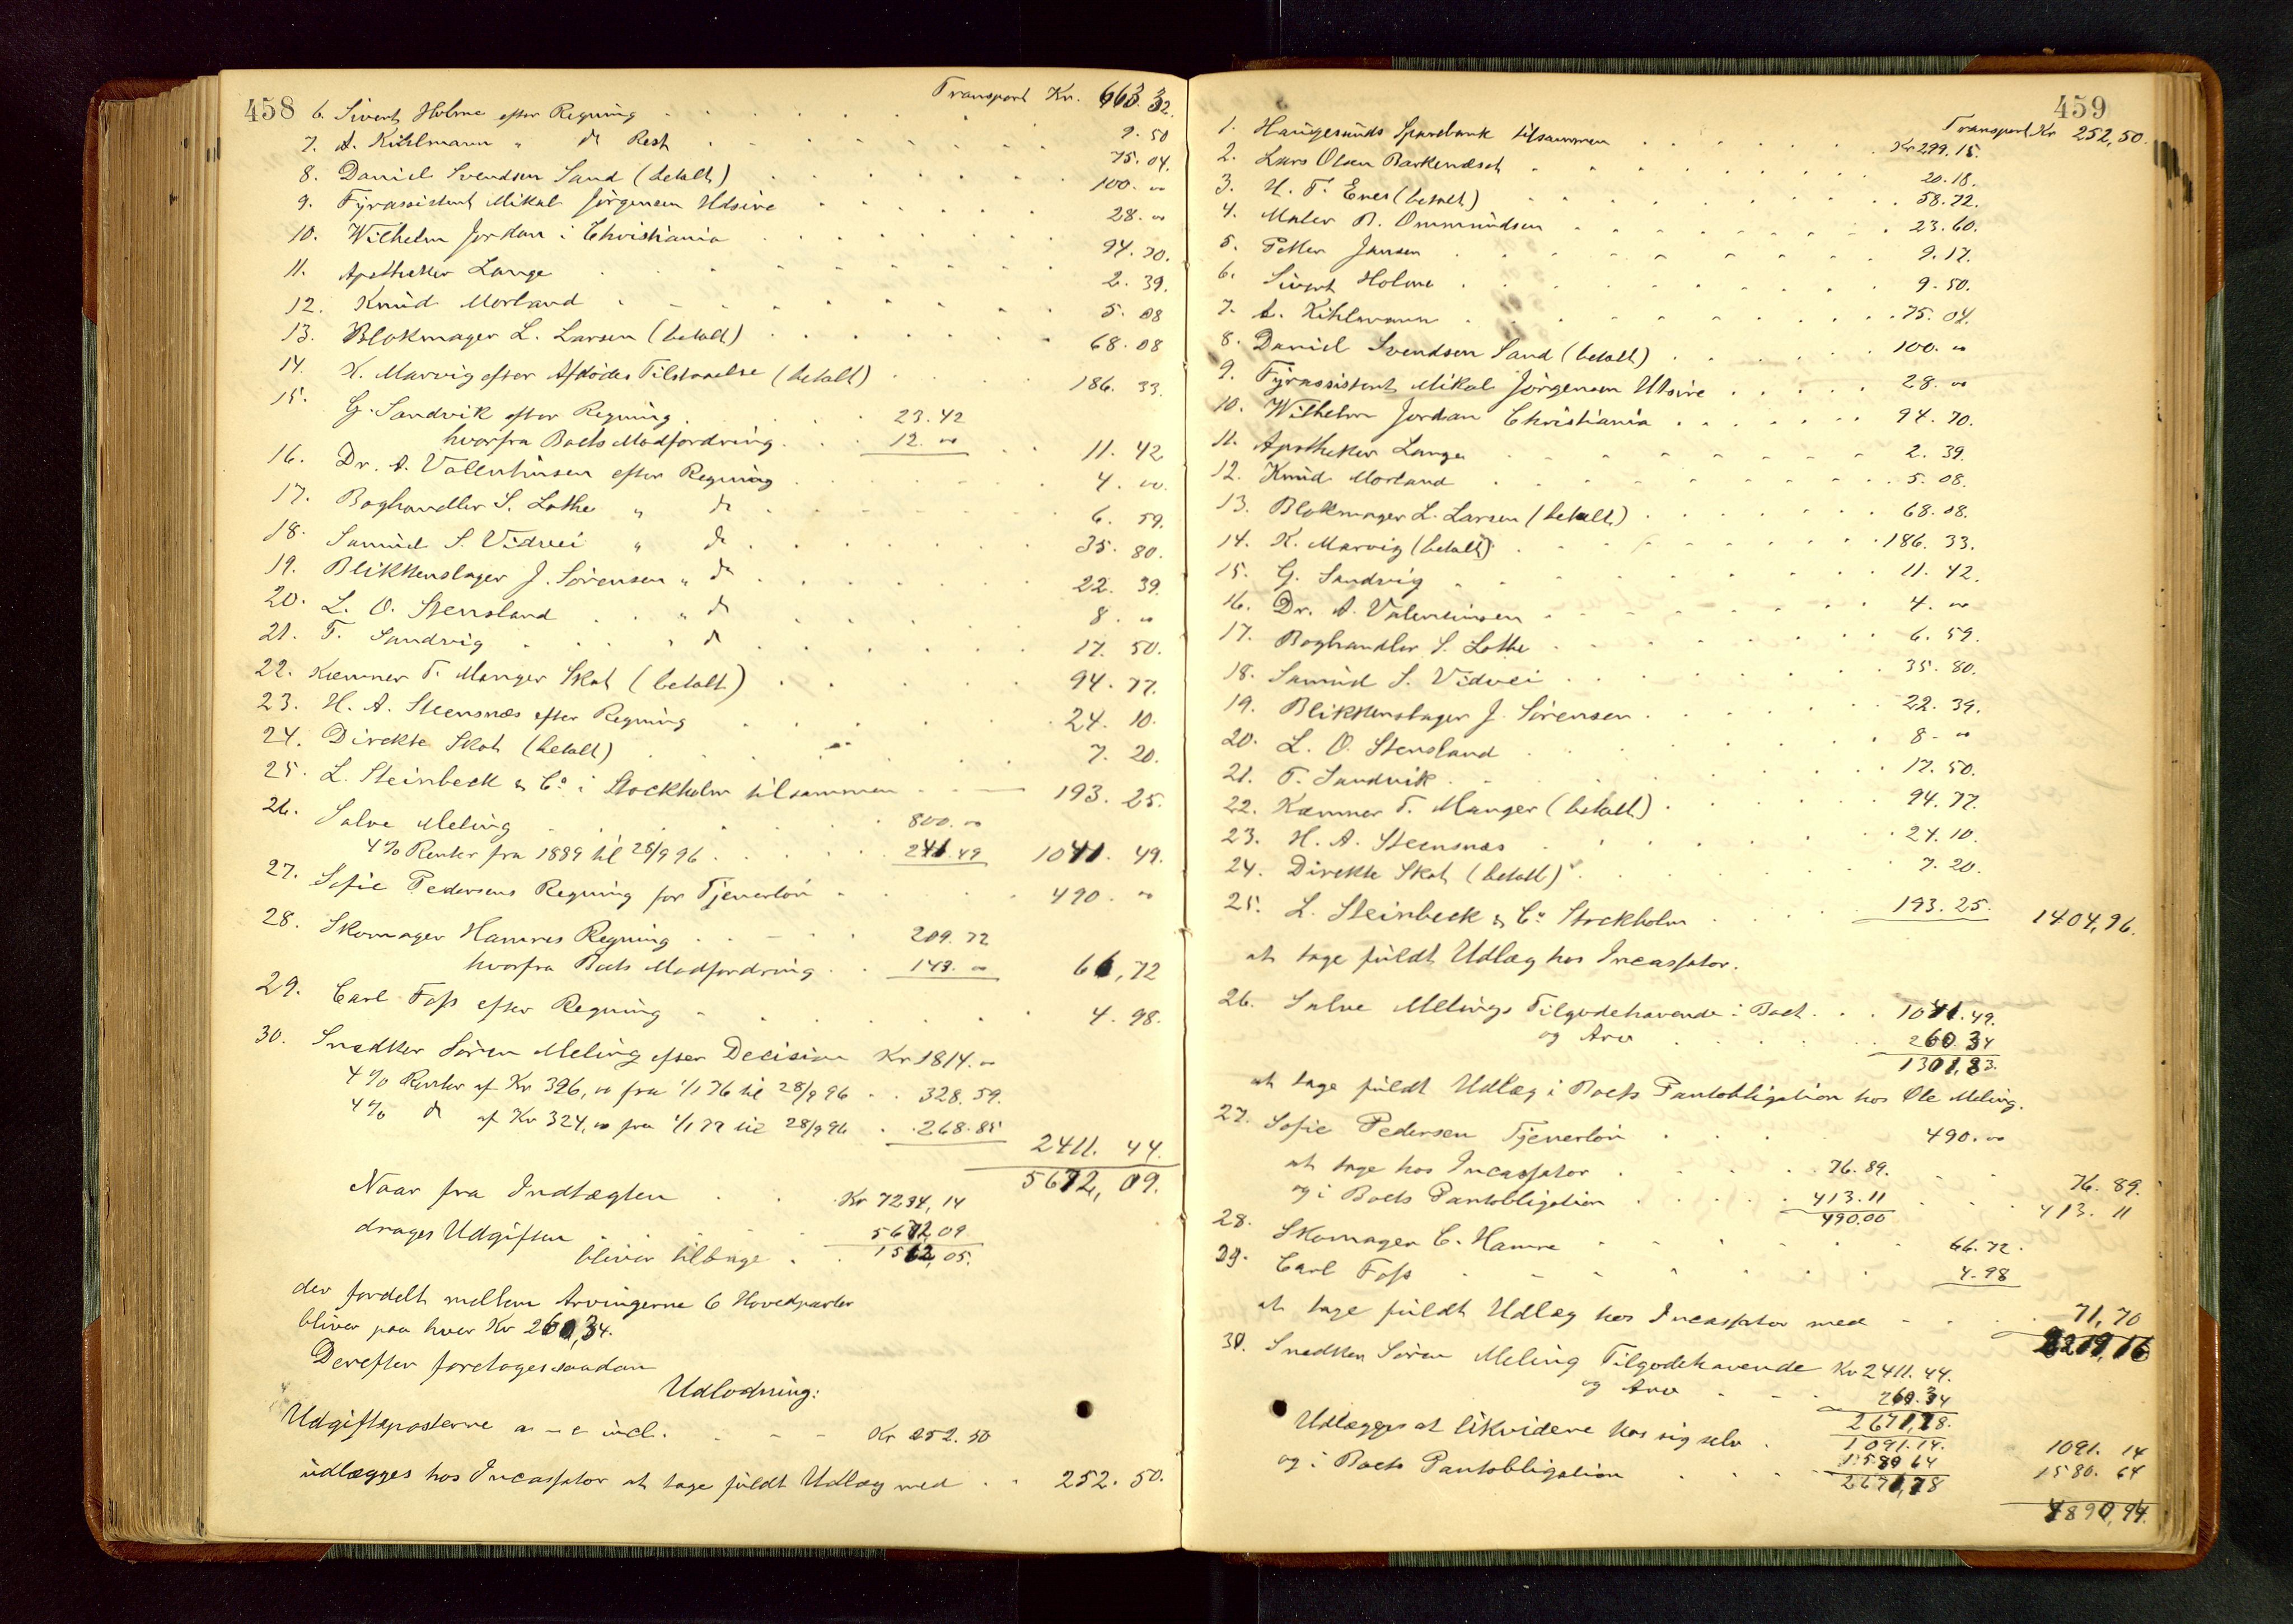 458
Transport Kr. 663.32.
6. Sivert Holme efter Regning 9.50
7. A. Kihlmann " do Rest 75.04.
8. Daniel Svendsen Sand (betalt) 100. "
9. Fyrassistent Mikal Jörgensen Utsire 28. "
10. Wilhelm Jordan i Christiania 94.70.
11. Apotheker Lange 2.39.
12. Knud Morland 5.08
13. Blokmager L. Larsen (betalt) 68.08
14. K. Marvig efter Afdödes Tilstaaelse (betalt) 186.33.
15. G. Sandvik efter Regning 23.42
hvorfra Boets Modfordring 12. " 11.42
16. Dr. A. Valentinsen efter Regning 4. "
17. Boghandler S. Lothe " do 6.59.
18. Samuel S. Vidvei " do 35.80.
19. Blikkenslager J. Sörensen " do 22.39.
20. L. O. Stensland " do 8. "
21. T. Sandvig " do 17.50.
22. Kæmner T. Manger Skat (betalt) 94.77.
23. H. A. Steensnæs efter Regning 24.10.
24. Direkte Skat (betalt) 7.20.
25. L. Steinbeck & Co i Stockholm tilsammen 193.25.
26. Salve Meling 800. "
4% Renter fra 1889 til 28/9 96 241.49 1041.49.
27. Sofie Pedersens Regning for Tjenerlön 490. "
28. Skomager Hamres Regning 209.72
hvorfra Boets Modfordring 143. " 66,72
29. Carl Foss efter Regning 4.98.
30. Snedker Sören Meling efter Decision Kr 1814. "
4% Renter af Kr 396, " fra 1/1 76 til 28/9 96 328.59.
4% do af Kr 324, " fra 1/1 77 til 28/9 96 268.85 2411.44.
5672,09.
Naar fra Indtægten Kr 7234,14
drages Udgiften 5672,09
bliver tilbage 1562,05.
der fordelt mellem Arvingerne 6 Hovedparter
bliver paa hver Kr 260,34.
Derefter foretages saadan
Udlodning:
Udgiftsposterne a - e incl. Kr 252.50
udlægges hos Incassator at tage fuldt Udlæg med 252.50.
459
Transport Kr 252,50.
1. Haugesunds Sparebank tilsammen Kr 299.15.
2. Lars Olsen Barkenæset 20.18.
3. H. T. Enes (betalt) 58.72.
4. Maler R. Ommundsen 23.60.
5. Petter Jansen 9.17.
6. Sivert Holme 9.50.
7. A. Kihlmann 75.04.
8. Daniel Svendsen Sand (betalt) 100. "
9. Fyrassistent Mikal Jörgensen Utsire 28. "
10. Wilhelm Jordan Christiania 94.70.
11. Apotheker Lange 2.39.
12. Knud Morland 5.08.
13. Blokmager L. Larsen (betalt) 68.08.
14. K. Marvig (betalt) 186.33.
15. G. Sandvig 11.42.
16. Dr. A. Valentinsen 4. "
17. Boghandler S. Lothe 6.59.
18. Samuel S. Vidvei 35.80.
19. Blikkenslager J. Sörensen 22.39.
20. L. O. Stensland 8. "
21. T. Sandvik 17.50.
22. Kæmner T. Manger (betalt) 94.77.
23. H. A. Steensnæs 24.10.
24. Direkte Skat (betalt) 7.20.
25. L. Steinbeck & Co Stockholm 193.25. 1404,96.
at tage fuldt Udlæg hos Incassator.
26. Salve Melings Tilgodehavende i Boet 1041.49.
og Arv 260.34
1301,83.
at tage fuldt Udlæg i Boets Pantobligation hos Ole Meling.
27. Sofie Pedersen Tjenerlön 490. "
at tage hos Incassator 76.89. 76.89.
og i Boets Pantobligation 413.11 413.11
490.00
28. Skomager C. Hamre 66.72.
29. Carl Foss 4.98
at tage fuldt Udlæg hos Incassator med 71,70
2219,16
30. Snedker Sören Meling Tilgodehavende Kr 2411.44.
og Arv 260.34
2671,78.
Udlægges at likvidere hos sig selv 1091.14. 1091.14
og i Boets Pantobligation 1580.64 1580.64
2671,78
4890,94.